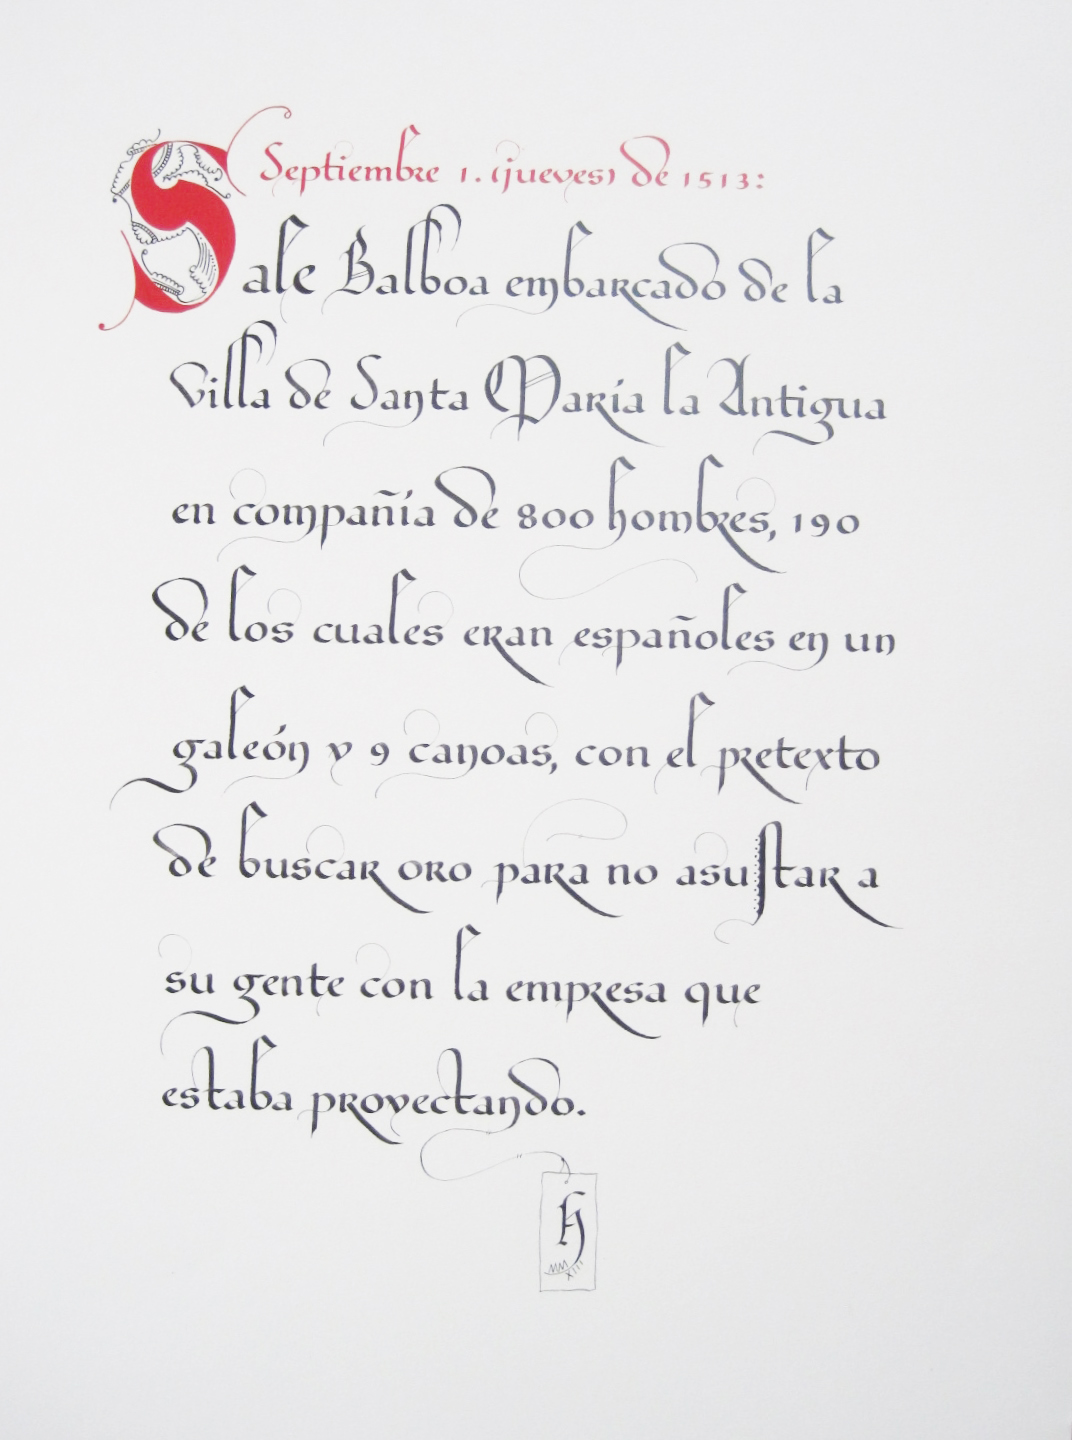 Septiembre 1. (jueves) de 1513:
Sale Balboa embarcado de la
Villa de Santa María la Antigua
en compañía de 800 hombres, 190
de los cuales eran españoles en un
galeón y 9 canoas, con el pretexto
de buscar oro para no asustar a
su gente con la empresa que
estaba proyectando.
H
MM
XIII